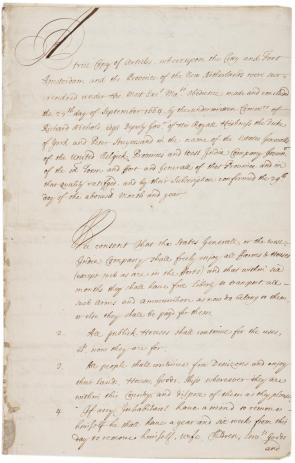 A
true Copy of Articles, whereupon the City and Fort
Amsterdam and the Province of the New Netherlands were sur-
rendred under the
made and
the 27th day of September 1664, by the underwritten Comrs. of
Richard Nicholls Esqr Deputy Govr. of his Royall Highness the Duke
of York and Peter Stuyvesand in the name of the States Generalls
of the United Belgick Provinces and West India Company
of the sd Town, and fort and Generalls of that Province and in
that quality ratifyed, and by their Subscription confirmed the 29th
day of the aboved month and year
We consent that the States Generalls, or the West
India Company shall freely enjoy all farms & houses
(except such as are in the forts) and that within six
months they shall have free liberty to transport all
such Arms and ammunition as now do belong to them
or else they shall be paid for them.
2. All publick Houses shall continue for the uses,
now they are for.
3. All people shall continue free Denizens and enjoy
their Lands, Houses, Goods, Ships wheresoever they are
within this Country and dispose of them as they please
4. If any Inhabitant have a mind to remove
himself he shall have a year and six weeks from this
day to remove himself, wife, Children, Goods
and